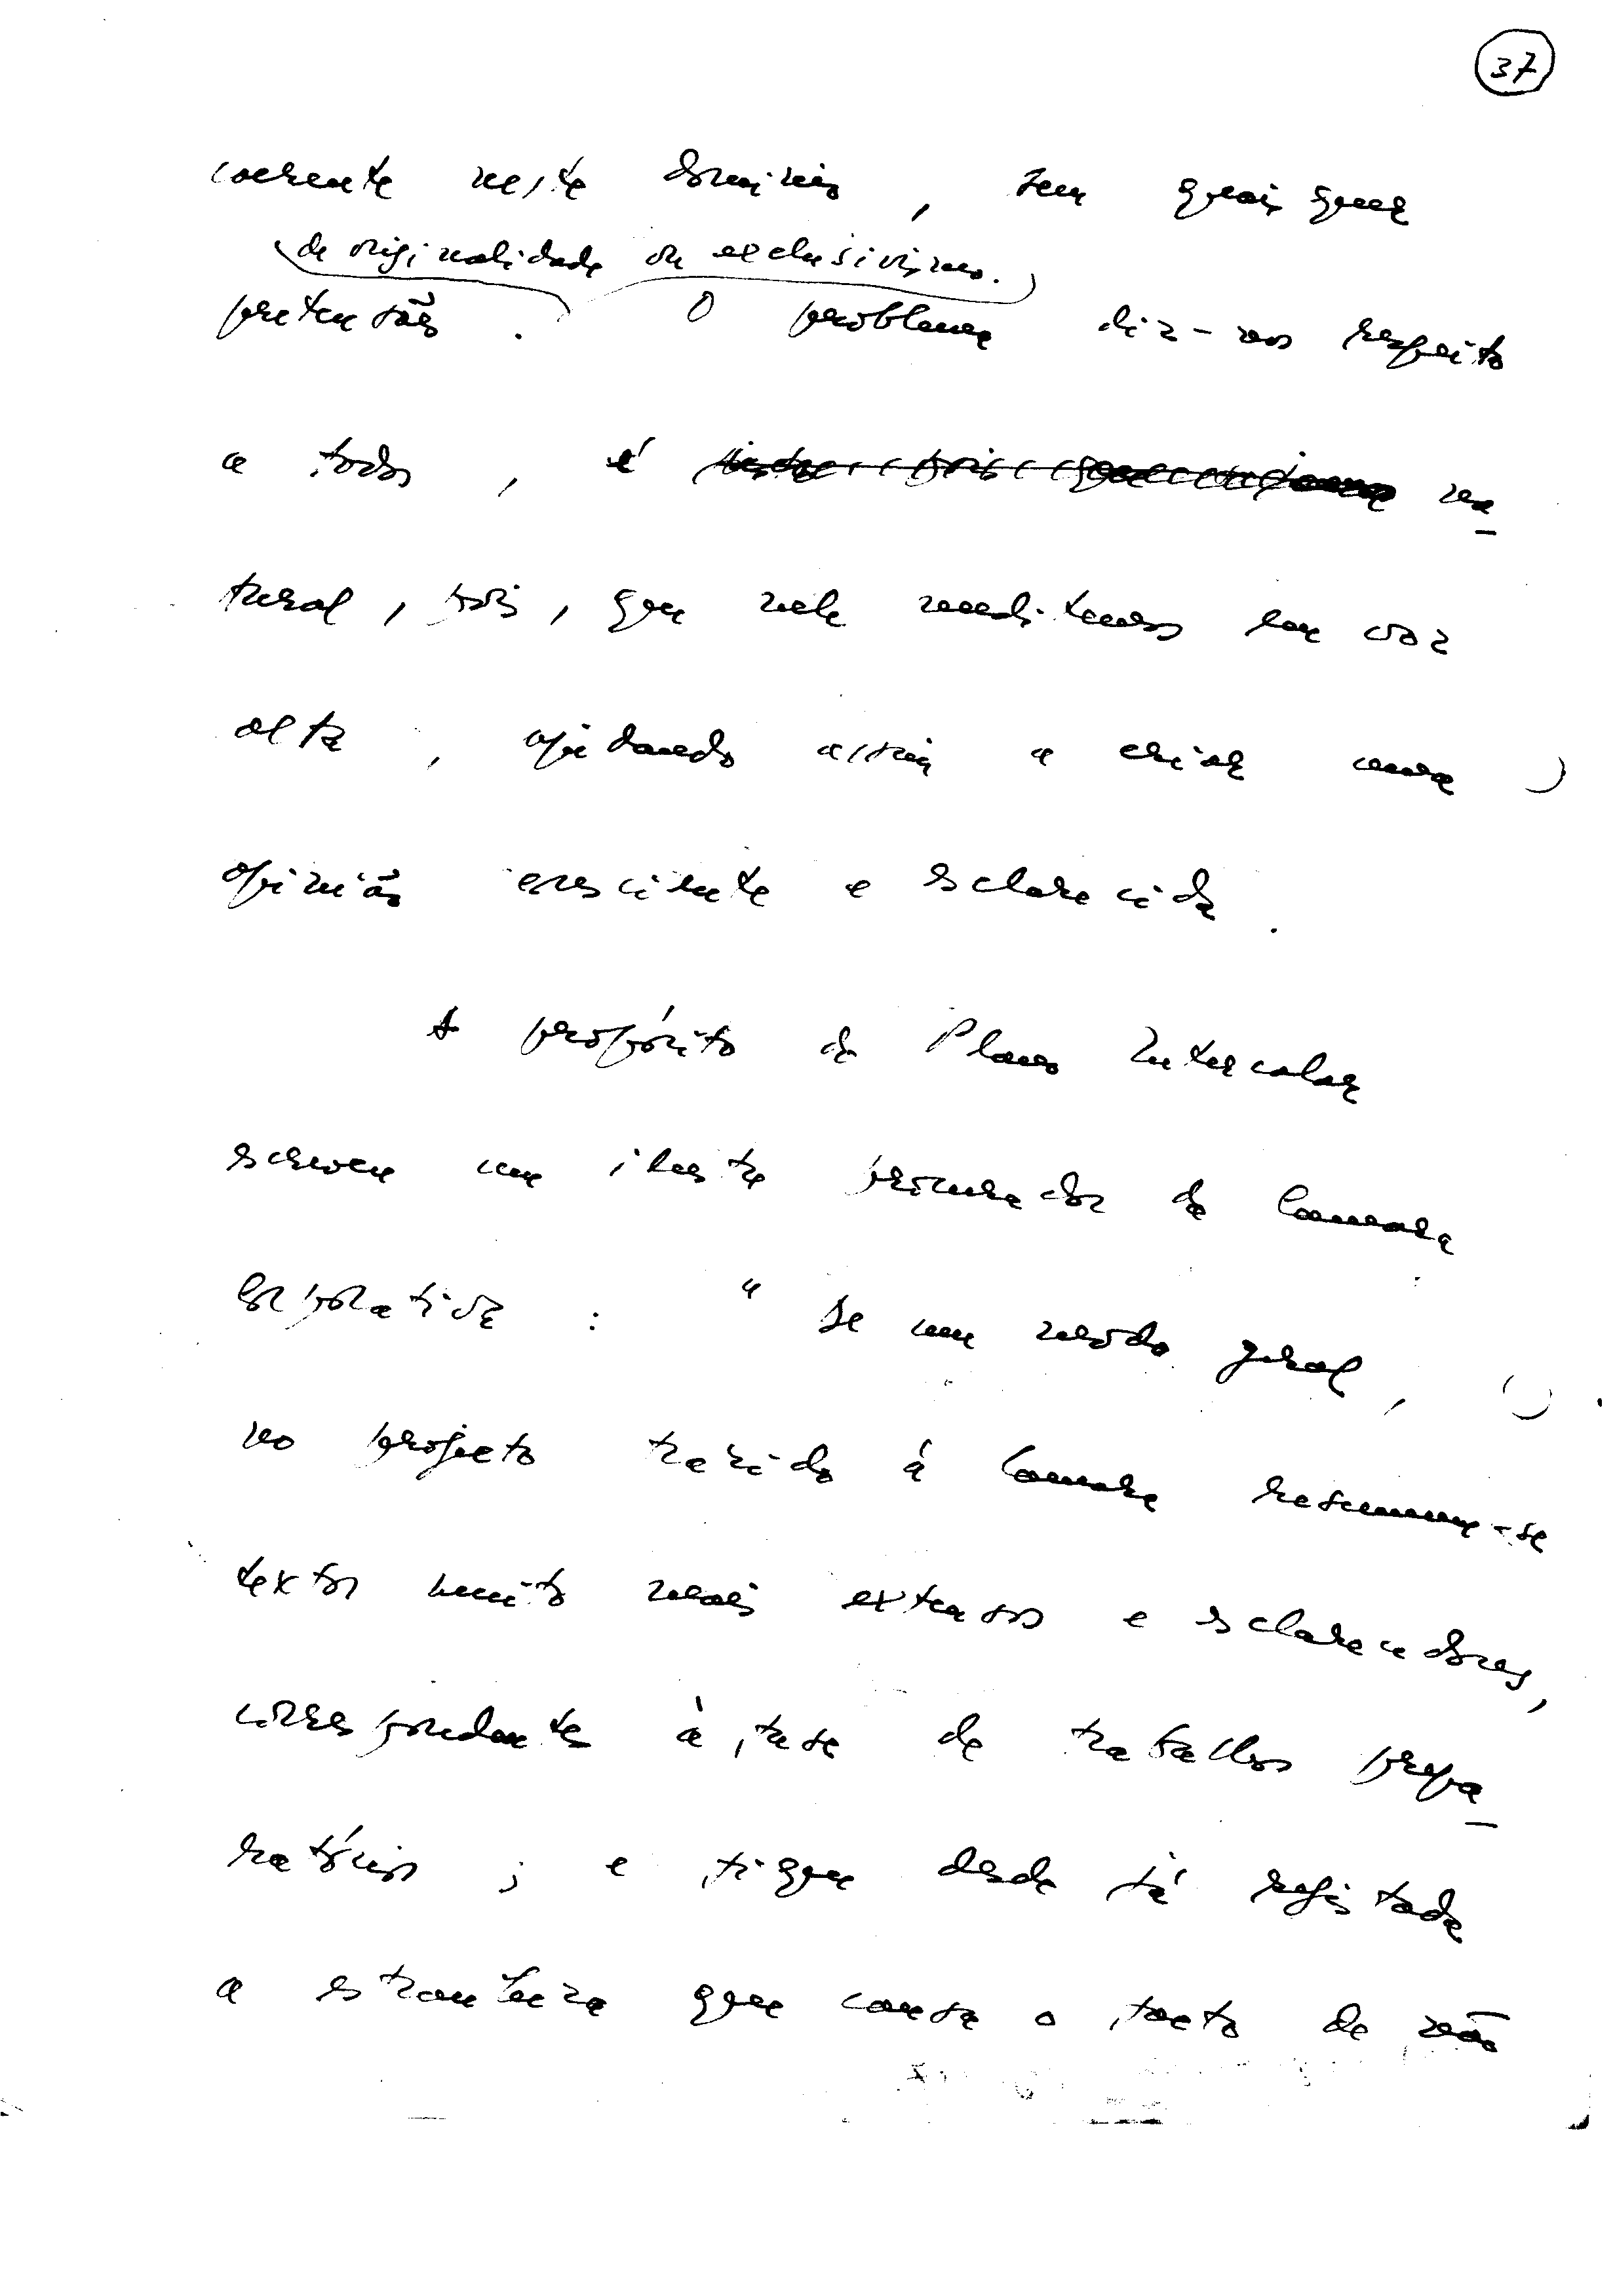 37
coerente neste domínio, sem quaisquer
de originalidade ou exclusivismo.
pretensões. O problema diz-nos respeito
a todos, é na-
tural, pois, que nele meditemos em voz
alta, ajudando assim a criar uma
opinião consciente e esclarecida.
A propósito do Plano Intercalar
escreveu um ilustre procurador da Camara
Corporativa: "De um modo geral,
no projecto trazido á Camara resumem-se
textos muito mais extensos e esclarecedores,
correspondentes à fase de trabalhos prepa-
ratórios; e fique desde já registada
a estranheza que causa o facto de não